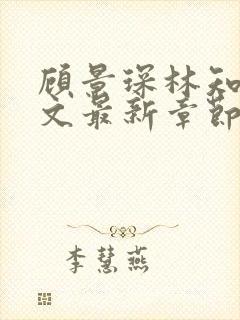 顾景琛林知
文最新章节
李慧燕